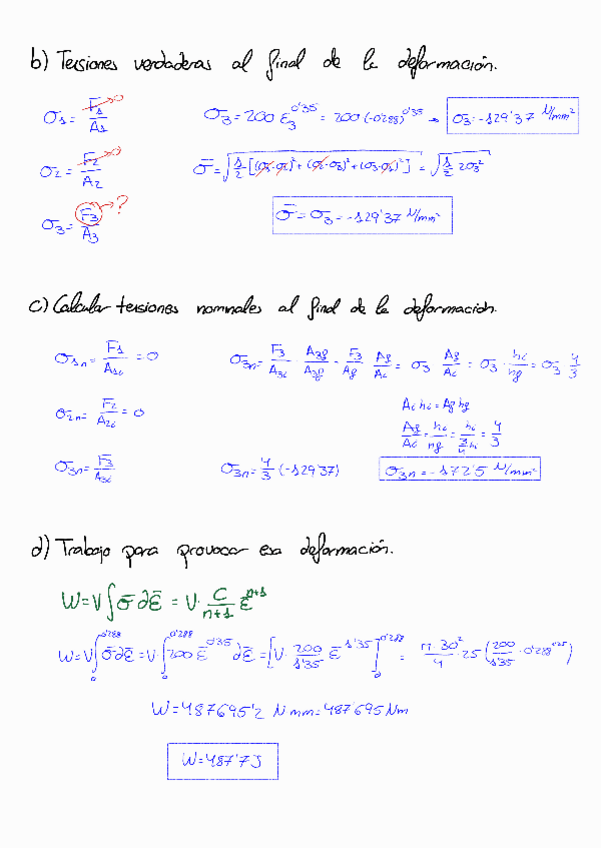 b) Tensiones verdaderas al final de la deformación.
σ1 = F1/A1 → 0
σ3 = 200 ε3^0'35 = 200 (-0'288)^0'35 → σ3 = -129'37 N/mm²
σ2 = F2/A2 → 0
σ̄ = √(1/2 [(σ1-σ2)² + (σ2-σ3)² + (σ3-σ1)²]) = √(1/2 2σ3²)
σ3 = F3/A3 → ?
σ̄ = σ3 = -129'37 N/mm²
c) Calcular tensiones nominales al final de la deformación.
σ1n = F1/A1i = 0
σ3n = F3/A3i · A3f/A3f = F3/Af · Af/Ai = σ3 Af/Ai = σ3 · hi/hf = σ3 4/3
σ2n = F2/A2i = 0
Ai hi = Af hf
Af/Ai = hi/hf = hi/(3/4 hi) = 4/3
σ3n = F3/A3i
σ3n = 4/3 (-129'37)
σ3n = -172'5 N/mm²
d) Trabajo para provocar esa deformación.
W = V ∫ σ̄ ∂ε̄ = V · C/(n+1) ε̄^(n+1)
W = V ∫₀^0'288 σ̄ ∂ε̄ = V · ∫₀^0'288 200 ε̄^0'35 ∂ε̄ = [V · 200/1'35 ε̄^1'35]₀^0'288 = π·30²/4 · 25 (200/1'35 · 0'288^1'35)
W = 487695'2 N mm = 487'695 Nm
W = 487'7 J